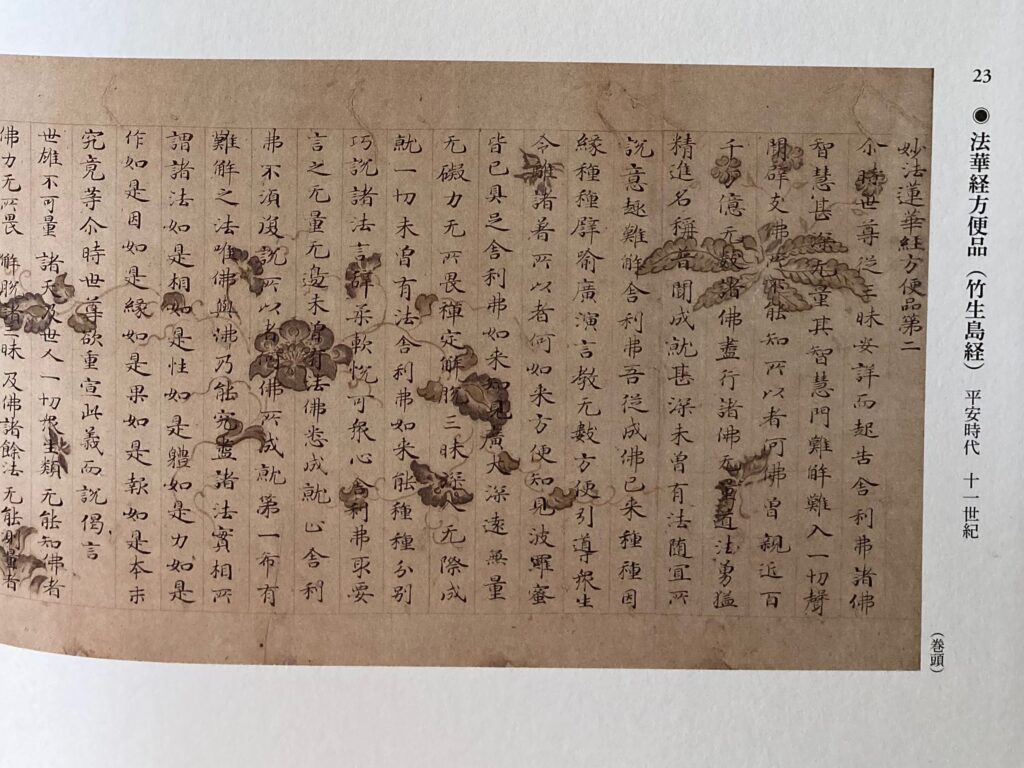 23
●法華経方便品(竹生島経) 平安時代 十一世紀
(巻頭)
妙法蓮華経方便品第二
尒時世尊従三昧安詳而起告舍利弗諸佛
智慧甚深无量其智慧門難解難入一切聲
聞辟支佛所不能知所以者何佛曽親近百
千万億无數諸佛盡行諸佛无量道法勇猛
精進名稱普聞成就甚深未曽有法随宜所
説意趣難解舍利弗吾従成佛已来種種因
縁種種譬喻廣演言教无數方便引導衆生
令離諸著所以者何如来方便知見波羅蜜
皆已具足舍利弗如来知見廣大深遠無量
无礙力无所畏禅定解脱三昧深入无際成
就一切未曽有法舍利弗如来能種種分別
巧説諸法言辞柔軟悦可衆心舍利弗取要
言之无量无邊未曽有法佛悉成就止舍利
弗不須復説所以者何佛所成就第一希有
難解之法唯佛與佛乃能究盡諸法實相所
謂諸法如是相如是性如是體如是力如是
作如是因如是縁如是果如是報如是本末
究竟等尒時世尊欲重宣此義而説偈言
世雄不可量 諸天及世人 一切衆生類 无能知佛者
佛力无所畏 解脱諸三昧 及佛諸餘法 无能測量者